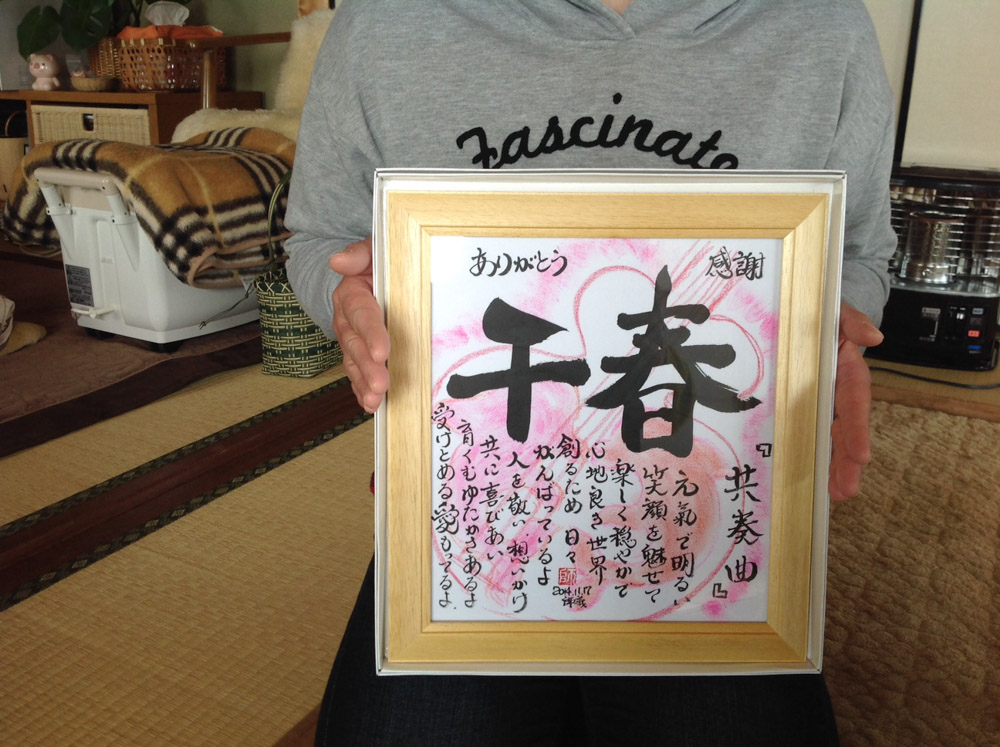 Fascinate
感謝
ありがとう
千春
『共奏曲』
元氣で明るい
笑顔を魅せて
楽しく穏やかで
心地良き世界
創るため 日々
がんばっているよ
人を敬い 想いかけ
共に喜びあい
育くむゆたかさあるよ
受けとめる愛もってるよ
2014.11.17